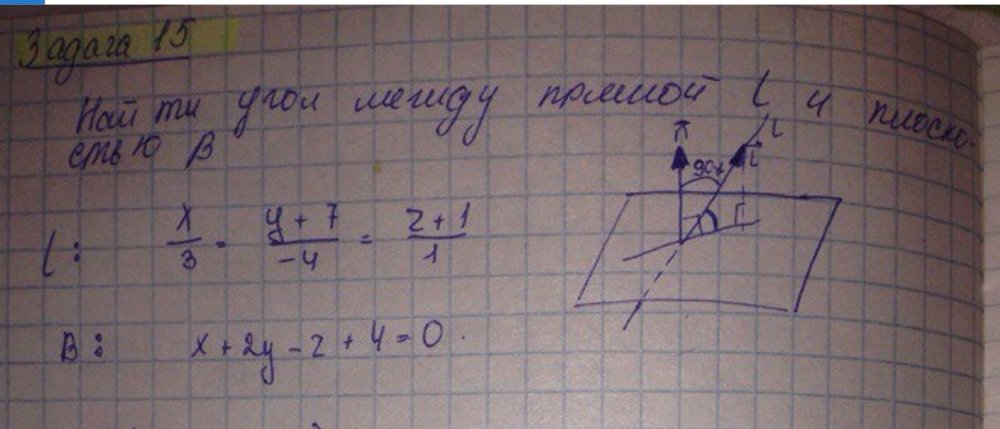 Задача 15
Найти угол между прямой l и плоско-
стью β
l: x/3 = (y + 7)/-4 = (z + 1)/1
n
L
90-α
l
B: x + 2y - z + 4 = 0.